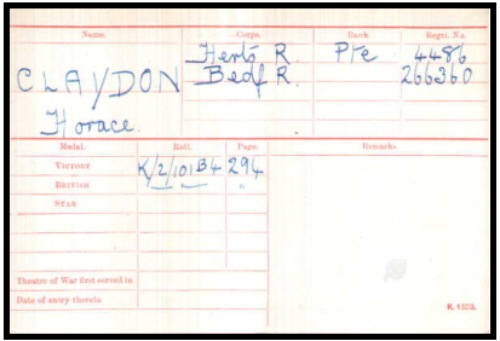 Name. Corps. Rank Regtl. No.
Herts R. Pte 4486
CLAYDON Bedf R. 266360
Horace.
Medal. Roll. Page. Remarks.
VICTORY K/2/101B4 294
BRITISH " "
STAR
Theatre of War first served in
Date of entry therein